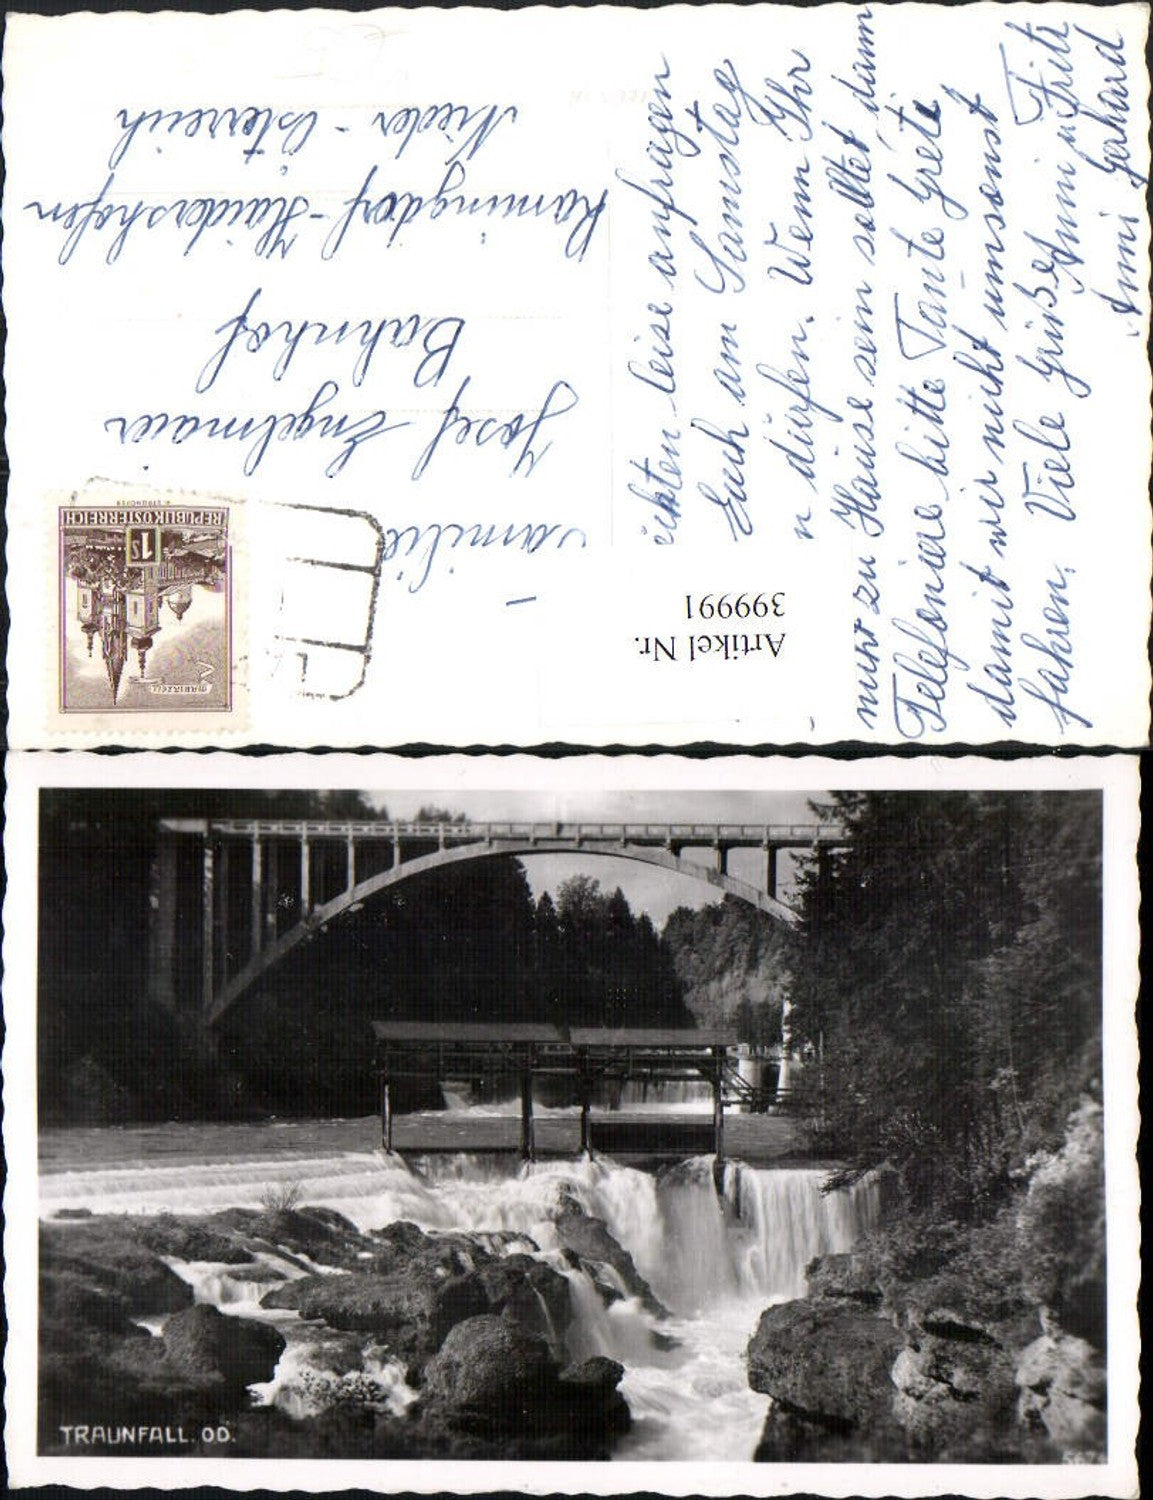 ichten leise anfragen
Euch am Samstag
n dürfen. Wenn Ihr
nicht zu Hause sein solltet, dann
Telefoniere bitte Tante Grete
damit wir nicht umsonst
fahren. Viele Grüße Fritz
Anni u.
Anni Gerhard
Familie
Josef Engelmaier
Bahnhof
Ramingdorf-Haidershofen
Nieder-Österreich
MARIAZELL
1 S
REPUBLIK ÖSTERREICH
Artikel Nr.
399991
TRAUNFALL. OD.